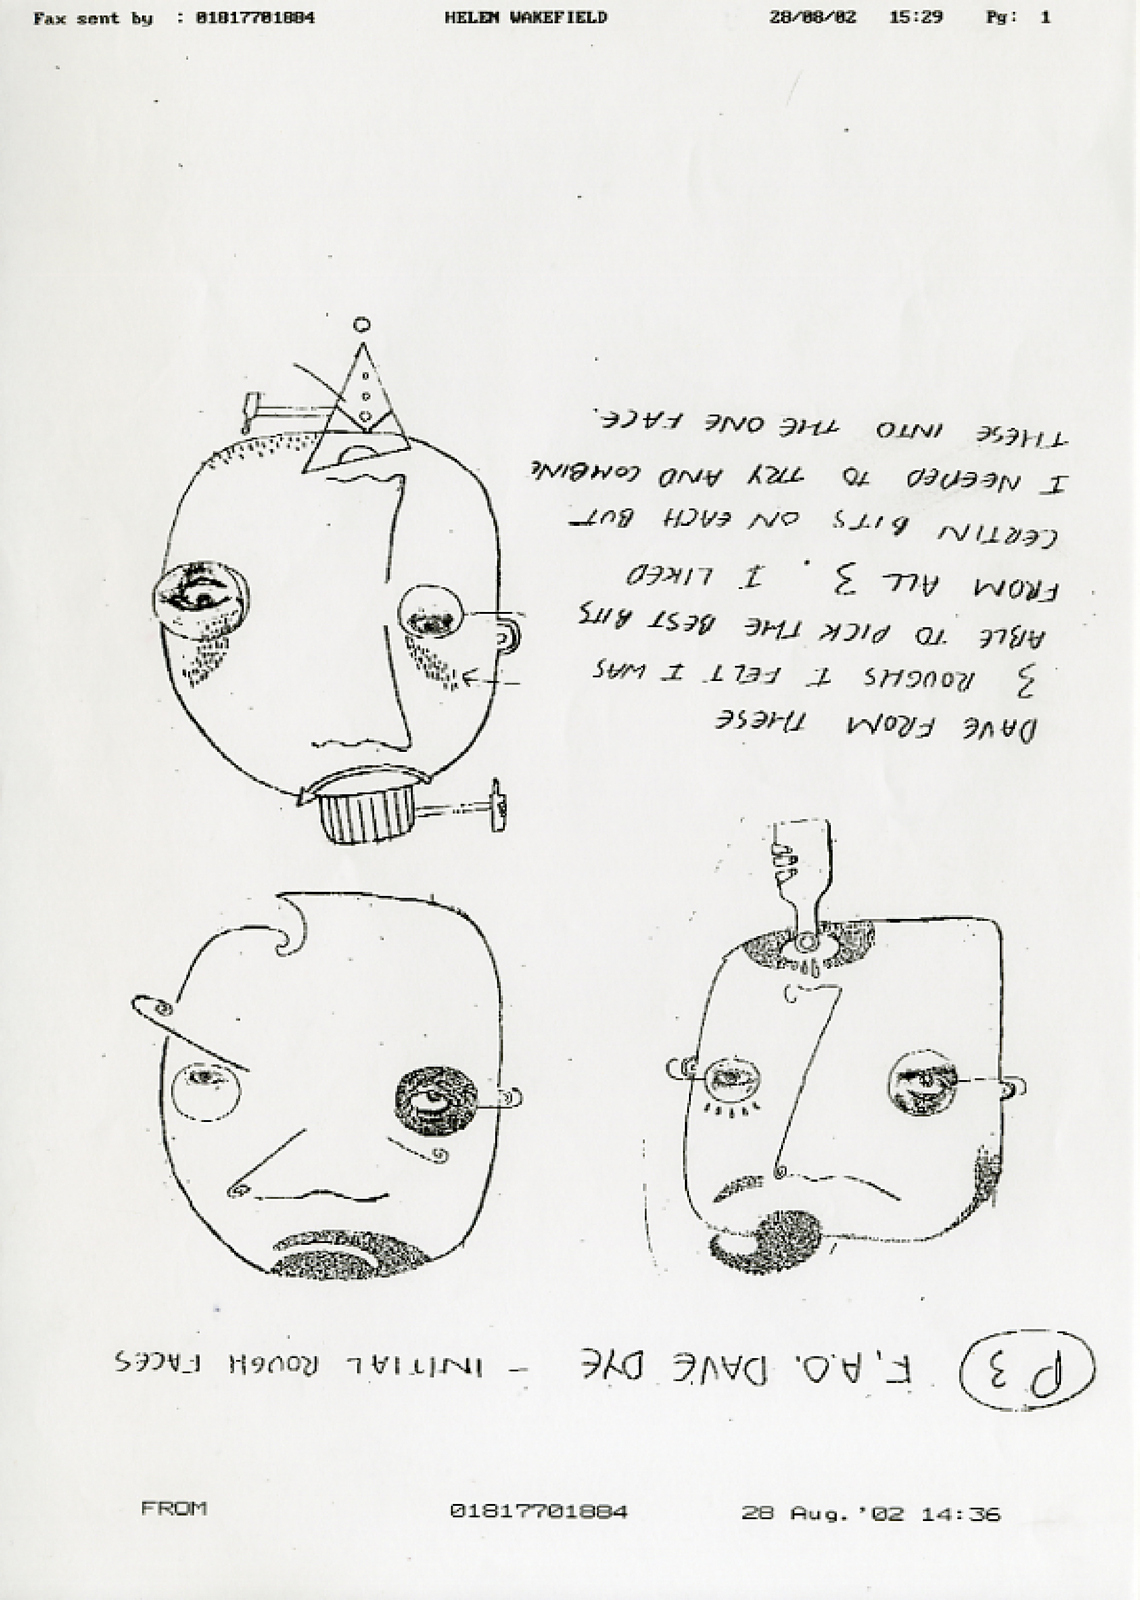 Fax sent by : 01817701884 HELEN WAKEFIELD 28/08/02 15:29 Pg: 1
P3 F.A.O. DAVE DYE - INITIAL ROUGH FACES
DAVE FROM THESE
3 ROUGHS I FELT I WAS
ABLE TO PICK THE BEST BITS
FROM ALL 3. I LIKED
CERTIN BITS ON EACH BUT
I NEEDED TO TRY AND COMBINE
THESE INTO THE ONE FACE.
FROM 01817701884 28 Aug.'02 14:36